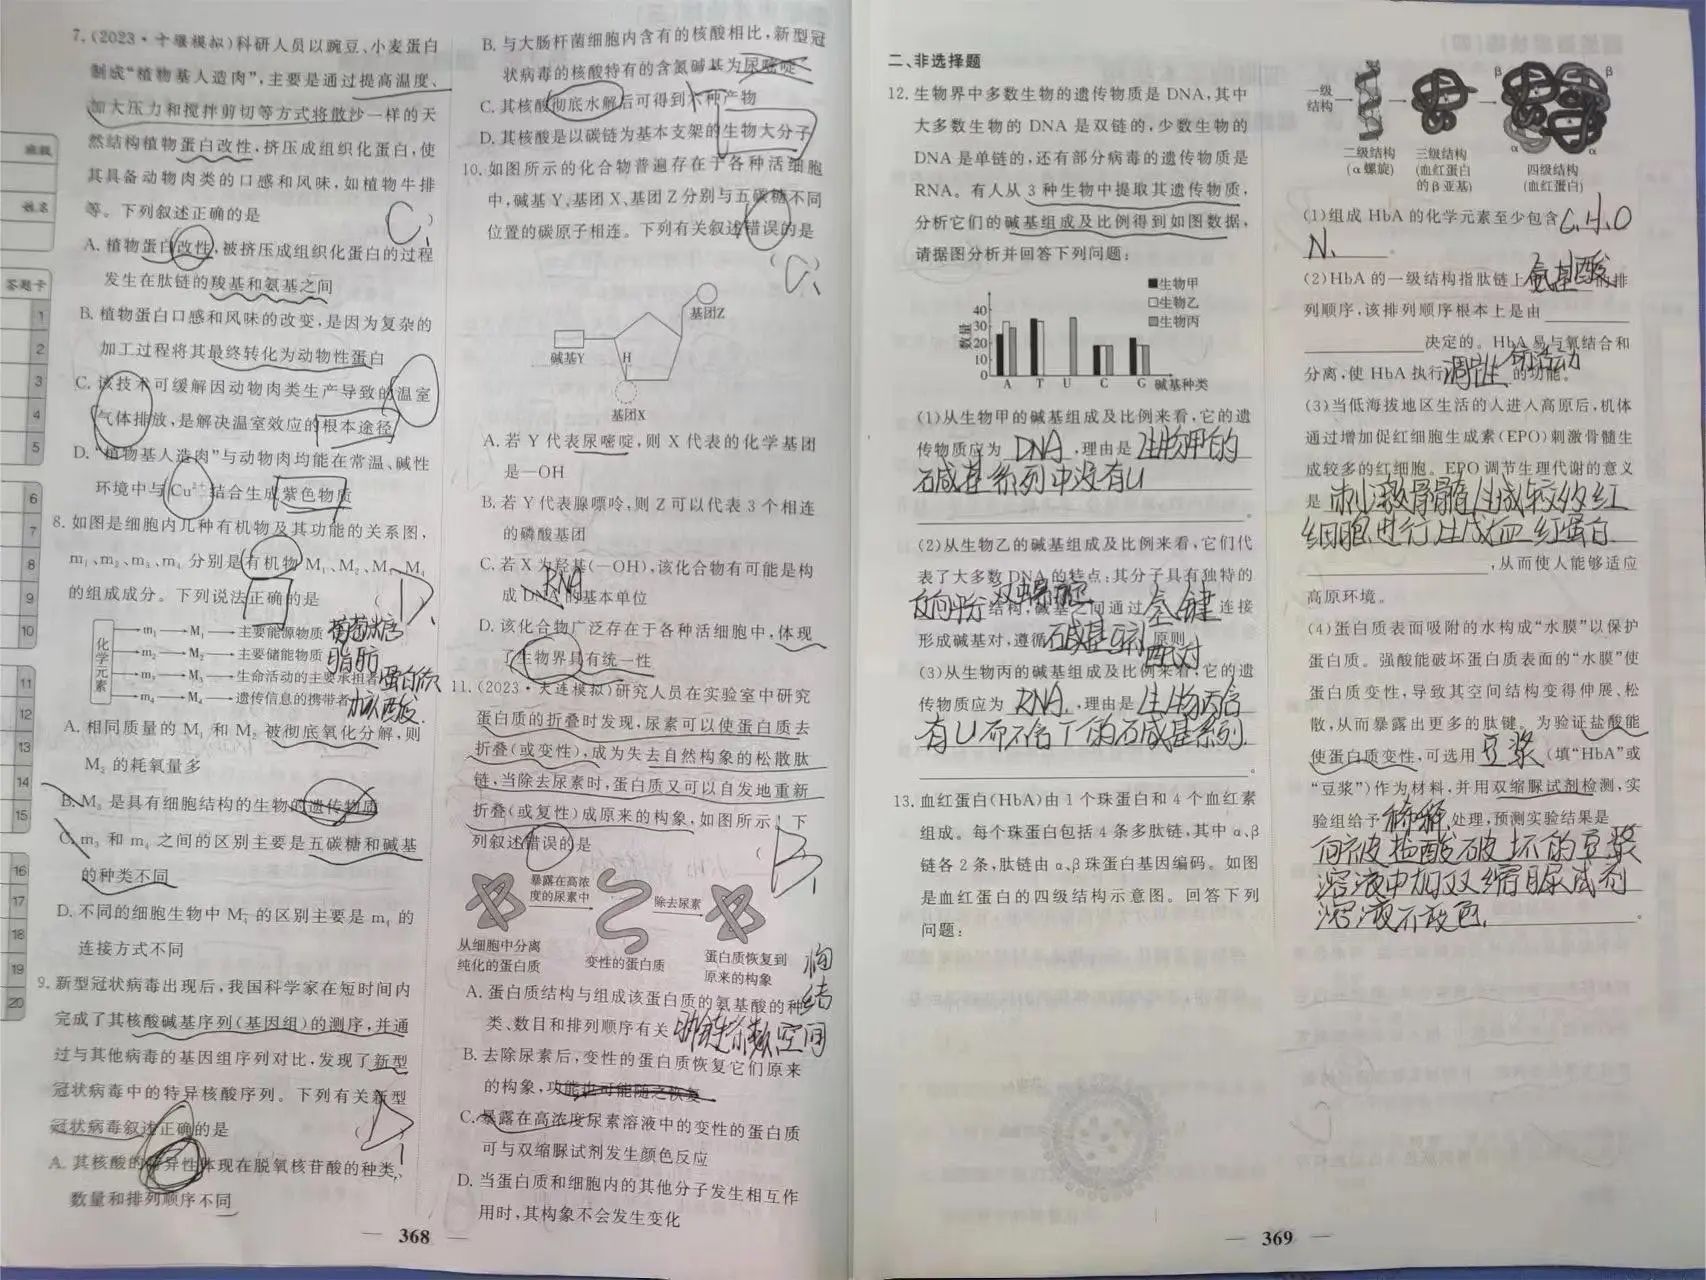 班级
姓名
答题卡
1
2
3
4
5
6
7
8
9
10
11
12
13
14
15
16
17
18
19
20
7.(2023·十堰模拟)科研人员以豌豆、小麦蛋白
制成“植物基人造肉”,主要是通过提高温度、
加大压力和搅拌剪切等方式将散沙一样的天
然结构植物蛋白改性,挤压成组织化蛋白,使
其具备动物肉类的口感和风味,如植物牛排
等。下列叙述正确的是 ( C )
A.植物蛋白改性,被挤压成组织化蛋白的过程
发生在肽链的羧基和氨基之间
B.植物蛋白口感和风味的改变,是因为复杂的
加工过程将其最终转化为动物性蛋白
C.该技术可缓解因动物肉类生产导致的温室
气体排放,是解决温室效应的根本途径
D.“植物基人造肉”与动物肉均能在常温、碱性
环境中与Cu²⁺结合生成紫色物质
8.如图是细胞内几种有机物及其功能的关系图,
m₁、m₂、m₃、m₄分别是有机物M₁、M₂、M₃、M₄
的组成成分。下列说法正确的是 ( D )
化学元素
m₁→M₁→主要能源物质 葡萄糖
m₂→M₂→主要储能物质 脂肪
m₃→M₃→生命活动的主要承担者 蛋白质
m₄→M₄→遗传信息的携带者 核酸
A.相同质量的M₁和M₂被彻底氧化分解,则
M₂的耗氧量多
B.M₃是具有细胞结构的生物的遗传物质
C.m₃和m₄之间的区别主要是五碳糖和碱基
的种类不同
D.不同的细胞生物中M₁的区别主要是m₁的
连接方式不同
9.新型冠状病毒出现后,我国科学家在短时间内
完成了其核酸碱基序列(基因组)的测序,并通
过与其他病毒的基因组序列对比,发现了新型
冠状病毒中的特异核酸序列。下列有关新型
冠状病毒叙述正确的是 ( D )
A.其核酸的特异性体现在脱氧核苷酸的种类、
数量和排列顺序不同
368
B.与大肠杆菌细胞内含有的核酸相比,新型冠
状病毒的核酸特有的含氮碱基为尿嘧啶
C.其核酸彻底水解后可得到六种产物
D.其核酸是以碳链为基本支架的生物大分子
10.如图所示的化合物普遍存在于各种活细胞
中,碱基Y、基团X、基团Z分别与五碳糖不同
位置的碳原子相连。下列有关叙述错误的是
( C )
基团Z
碱基Y
H
基团X
A.若Y代表尿嘧啶,则X代表的化学基团
是—OH
B.若Y代表腺嘌呤,则Z可以代表3个相连
的磷酸基团
C.若X为羟基(—OH),该化合物有可能是构
成DNA的基本单位
RNA
D.该化合物广泛存在于各种活细胞中,体现
了生物界具有统一性
11.(2023·大连模拟)研究人员在实验室中研究
蛋白质的折叠时发现,尿素可以使蛋白质去
折叠(或变性),成为失去自然构象的松散肽
链,当除去尿素时,蛋白质又可以自发地重新
折叠(或复性)成原来的构象,如图所示。下
列叙述错误的是 ( B )
暴露在高浓
度的尿素中
除去尿素
从细胞中分离
纯化的蛋白质
变性的蛋白质
蛋白质恢复到
原来的构象
A.蛋白质结构与组成该蛋白质的氨基酸的种
类、数目和排列顺序有关 肽链条数,空间
结构
B.去除尿素后,变性的蛋白质恢复它们原来
的构象,功能也可能随之恢复
C.暴露在高浓度尿素溶液中的变性的蛋白质
可与双缩脲试剂发生颜色反应
D.当蛋白质和细胞内的其他分子发生相互作
用时,其构象不会发生变化
二、非选择题
12.生物界中多数生物的遗传物质是DNA,其中
大多数生物的DNA是双链的,少数生物的
DNA是单链的,还有部分病毒的遗传物质是
RNA。有人从3种生物中提取其遗传物质,
分析它们的碱基组成及比例得到如图数据,
请据图分析并回答下列问题:
数量
40
30
20
10
0
A T U C G 碱基种类
生物甲
生物乙
生物丙
(1)从生物甲的碱基组成及比例来看,它的遗
传物质应为 DNA ,理由是 生物甲的
碱基系列中没有U
。
(2)从生物乙的碱基组成及比例来看,它们代
表了大多数DNA的特点:其分子具有独特的
双螺旋 结构,碱基之间通过 氢键 连接
形成碱基对,遵循 碱基互补配对 原则。
(3)从生物丙的碱基组成及比例来看,它的遗
传物质应为 RNA ,理由是 生物丙含
有U而不含T的碱基系列
。
13.血红蛋白(HbA)由1个珠蛋白和4个血红素
组成。每个珠蛋白包括4条多肽链,其中α、β
链各2条,肽链由α、β珠蛋白基因编码。如图
是血红蛋白的四级结构示意图。回答下列
问题:
一级
结构
二级结构
(α螺旋)
三级结构
(血红蛋白
的β亚基)
四级结构
(血红蛋白)
β
β
α
α
(1)组成HbA的化学元素至少包含 C、H、O
N、 。
(2)HbA的一级结构指肽链上 氨基酸 的排
列顺序,该排列顺序根本上是由
决定的。HbA易与氧结合和
分离,使HbA执行 的功能。
(3)当低海拔地区生活的人进入高原后,机体
通过增加促红细胞生成素(EPO)刺激骨髓生
成较多的红细胞。EPO调节生理代谢的意义
是 刺激骨髓生成较多红
细胞进行生成血红蛋白
,从而使人能够适应
高原环境。
(4)蛋白质表面吸附的水构成“水膜”以保护
蛋白质。强酸能破坏蛋白质表面的“水膜”使
蛋白质变性,导致其空间结构变得伸展、松
散,从而暴露出更多的肽键。为验证盐酸能
使蛋白质变性,可选用 豆浆 (填“HbA”或
“豆浆”)作为材料,并用双缩脲试剂检测,实
验组给予 稀释 处理,预测实验结果是
向被盐酸破坏的豆浆
溶液中加双缩脲试剂
溶液不变色
。
369